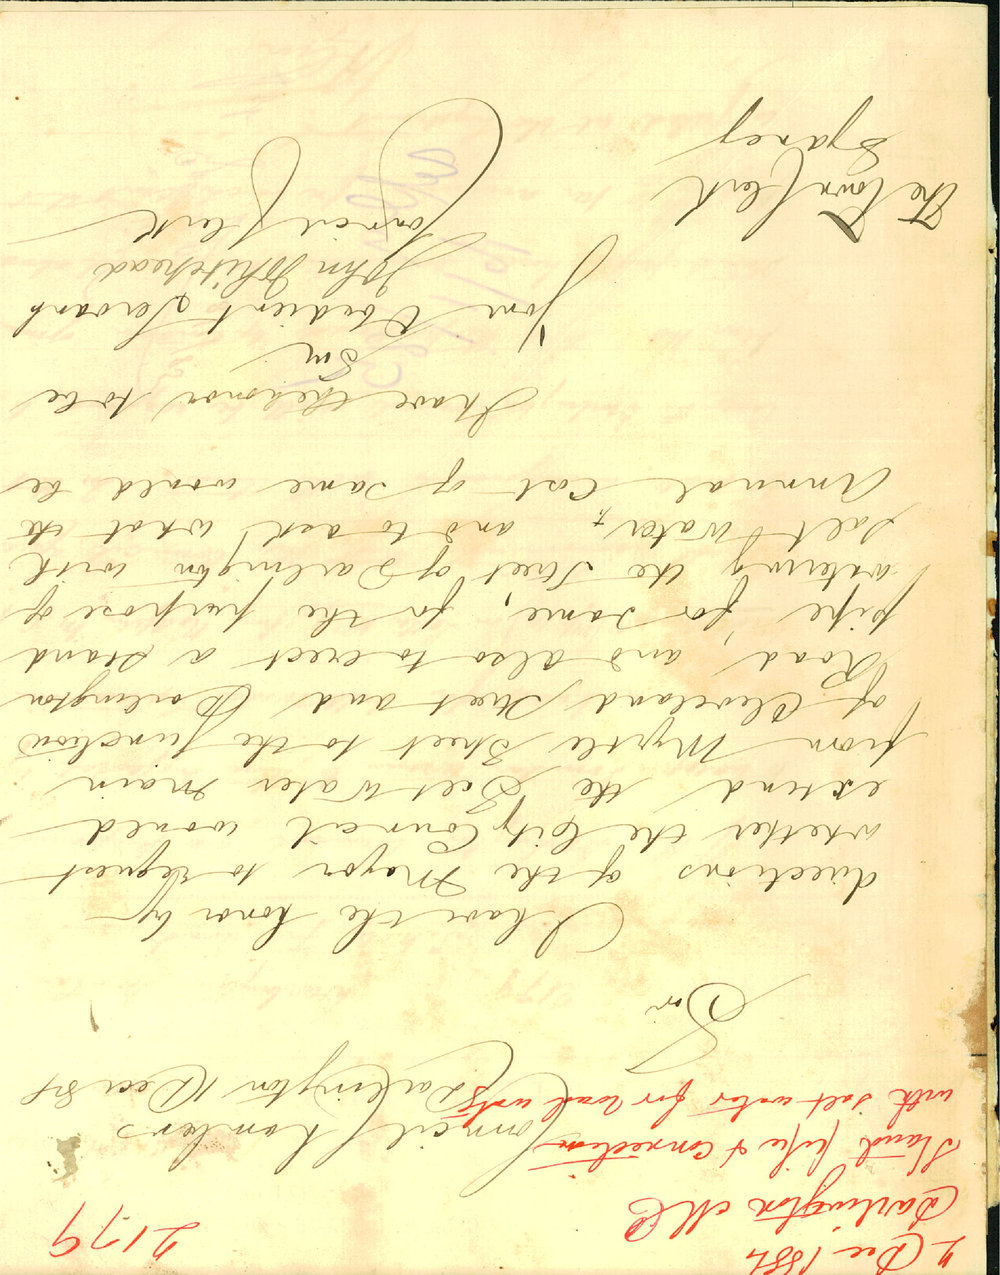 2 Dec 1884
2179
Darlington M C
Stand pipe & Connection
with salt water for road watg
Council Chambers
Darlington 1 Dec 84
Sir
I have the honor by
directions of the Mayor to request
whether the City Council would
extend the Salt Water Main
from Myrtle Street to the junction
of Cleveland Street and Darlington
Road, and also to erect a stand
pipe for same, for the purpose of
watering the Street of Darlington with
salt water, and to ask what the
Annual Cost of same would be
I have the honor to be
Sir
Your Obedient Servant
John Whitehead
Council Clerk
The Town Clerk
Sydney